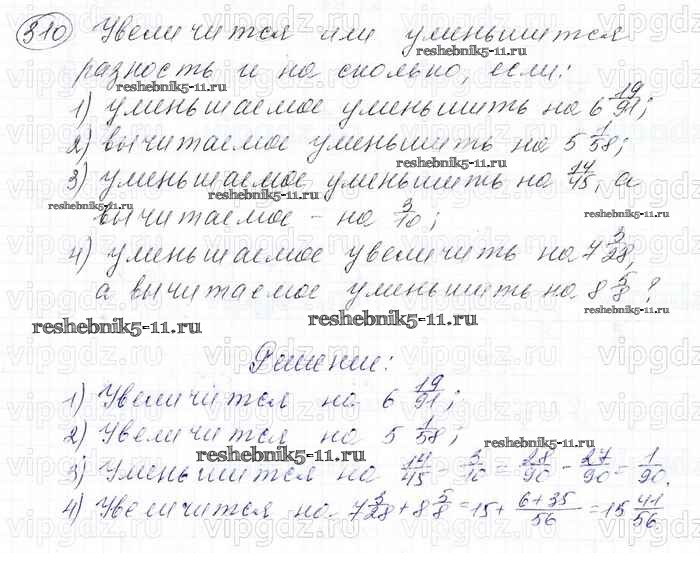 310) Увеличится или уменьшится
reshebnik5-11.ru
разность и на сколько, если:
reshebnik5-11.ru
1) уменьшаемое уменьшить на 6 19/91;
2) вычитаемое уменьшить на 5 1/58;
reshebnik5-11.ru
3) уменьшаемое уменьшить на 14/45, а
reshebnik5-11.ru
вычитаемое - на 3/10;
reshebnik5-11.ru
4) уменьшаемое увеличить на 7 3/28,
а вычитаемое уменьшить на 8 5/8?
reshebnik5-11.ru reshebnik5-11.ru
Решение:
1) Увеличится на 6 19/91;
2) Увеличится на 5 1/58;
reshebnik5-11.ru
3) Уменьшится на 14/45 - 3/10 = 28/90 - 27/90 = 1/90.
4) Увеличится на 7 3/28 + 8 5/8 = 15 + (6+35)/56 = 15 41/56.